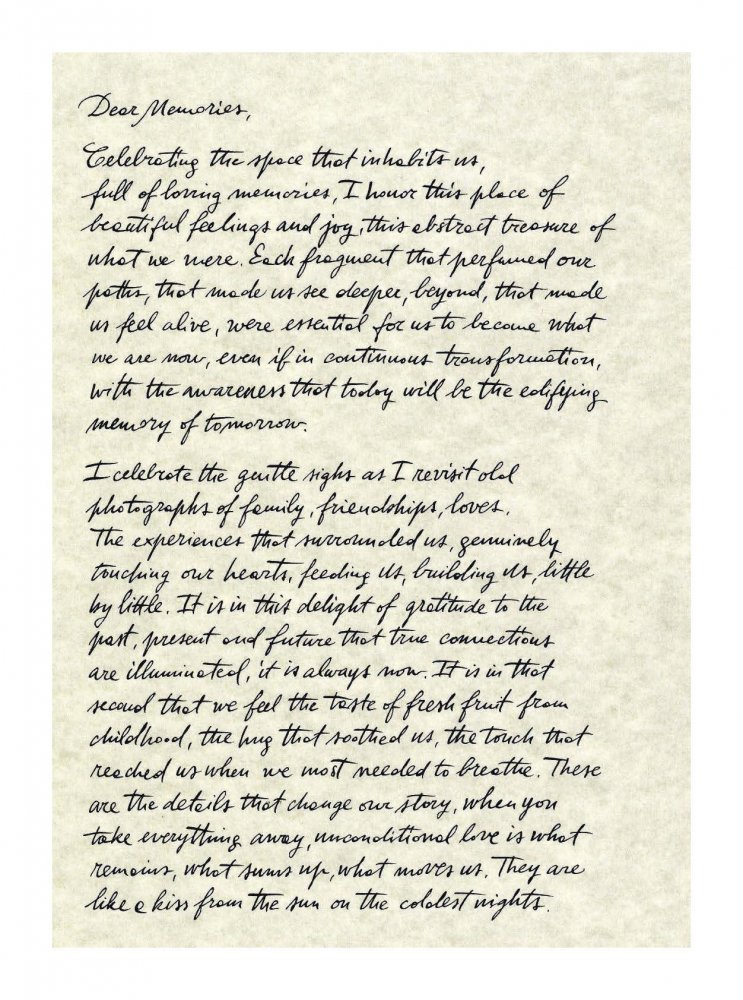 Dear Memories,
Celebrating the space that inhabits us,
full of loving memories, I honor this place of
beautiful feelings and joy, this abstract treasure of
what we were. Each fragment that perfumed our
paths, that made us see deeper, beyond, that made
us feel alive, were essential for us to become what
we are now, even if in continuous transformation,
with the awareness that today will be the edifying
memory of tomorrow.
I celebrate the gentle sighs as I revisit old
photographs of family, friendships, loves.
The experiences that surrounded us, genuinely
touching our hearts, feeding us, building us, little
by little. It is in this delight of gratitude to the
past, present and future that true connections
are illuminated, it is always now. It is in that
second that we feel the taste of fresh fruit from
childhood, the hug that soothed us, the touch that
reached us when we most needed to breathe. These
are the details that change our story, when you
take everything away, unconditional love is what
remains, what sums up, what moves us. They are
like a kiss from the sun on the coldest nights.